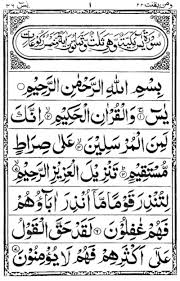 ومن يقنت ٢٢ ١ يس ٣٦
سورة يس مكية وهي ثلث وثمانون اية وخمس ركوعات
بِسْمِ اللهِ الرَّحْمٰنِ الرَّحِيْمِ
يٰسٓ وَالْقُرْاٰنِ الْحَكِيْمِ اِنَّكَ
لَمِنَ الْمُرْسَلِيْنَ عَلٰى صِرَاطٍ
مُّسْتَقِيْمٍ تَنْزِيْلَ الْعَزِيْزِ الرَّحِيْمِ
لِتُنْذِرَ قَوْمًا مَّآ اُنْذِرَ اٰبَآؤُهُمْ
فَهُمْ غٰفِلُوْنَ لَقَدْ حَقَّ الْقَوْلُ
عَلٰٓى اَكْثَرِهِمْ فَهُمْ لَا يُؤْمِنُوْنَ